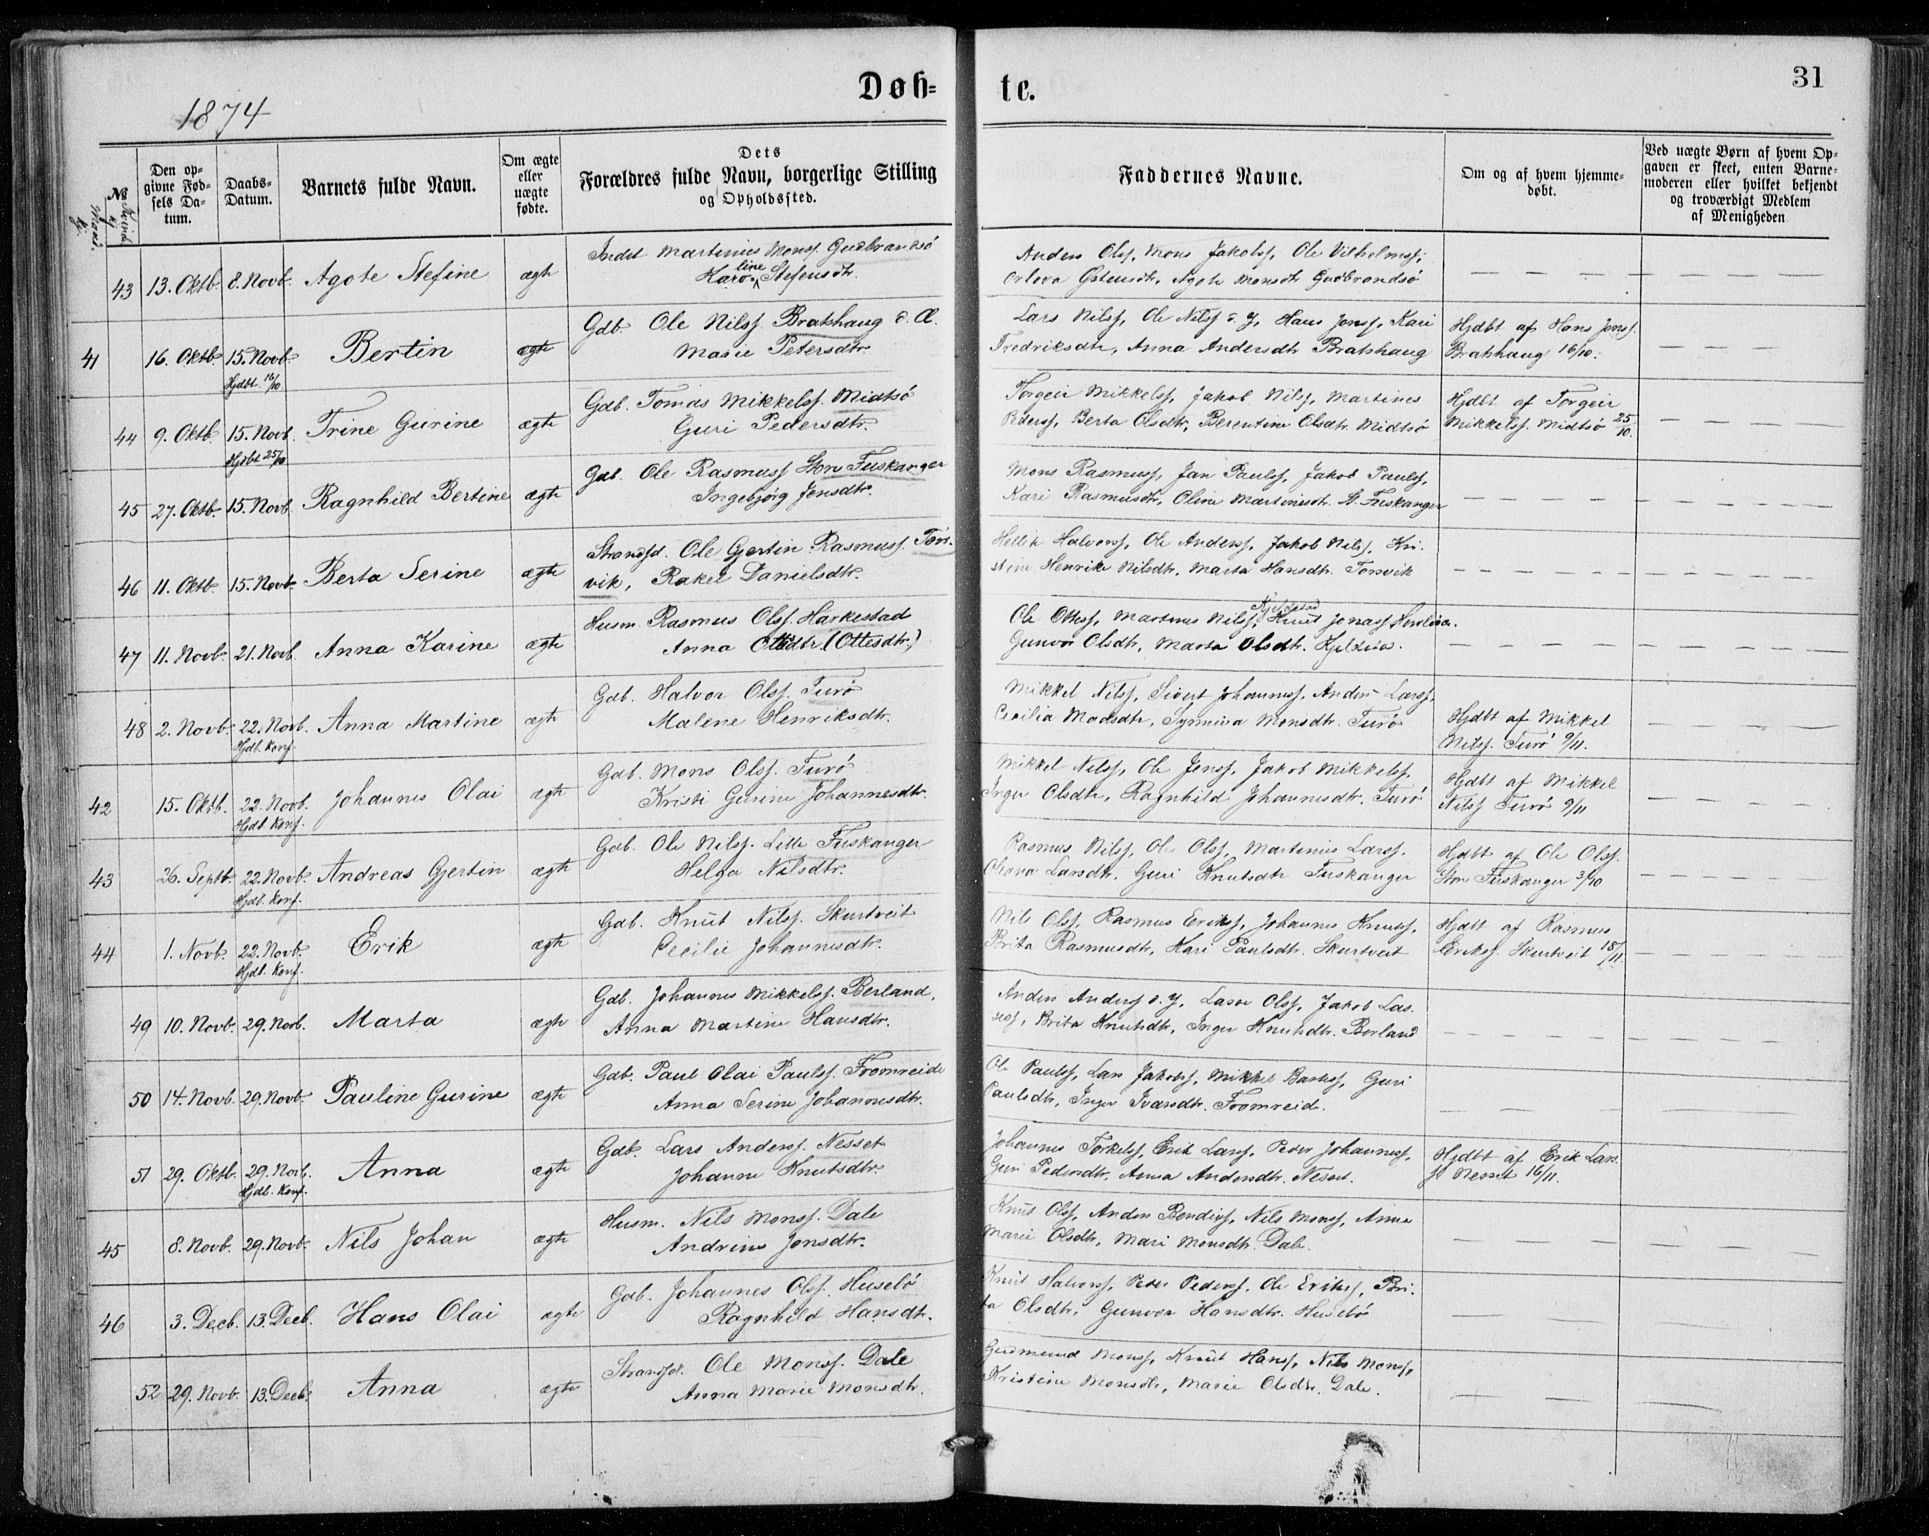 1874
Døb=
te.
31
№
Mand kj.
Kvind kj
Den op-
givne Fød-
sels Da-
tum.
Daabs-
Datum.
Barnets fulde Navn.
Om ægte
eller
uægte
fødte.
Dets
Forældres fulde Navn, borgerlige Stilling
og Opholdssted.
Faddernes Navne.
Om og af hvem hjemme-
døbt.
Ved uægte Børn af hvem Op-
gaven er skeet, enten Barne-
moderen eller hvilket bekjendt
og troværdigt Medlem
af Menigheden
43 13. Oktb. 8. Novb. Agote Stefine ægte
Indst Martinius Monss. Gudbrandsö
line Stefensdtr.
Anders Olss, Mons Jakobss, Ole Vilhelmss,
Orlova Östensdtr, Agote Monsdtr Gudbrandsö
41 16. Oktb. 15. Novb. Bertin ægte
Hjdbt. 16/10
Gdb. Ole Nilss. Bratshaug d. Æ.
Marie Petersdtr.
Lars Nilss, Ole Nilss d. Y, Hans Jenss, Kari
Fredriksdtr, Anna Andersdtr Bratshaug
Hjdbt af Hans Jenss.
Bratshaug 16/10.
44 9. Oktb. 15. Novb. Trine Gurine ægte
Hjdbt 25/10
Gdb. Tomas Mikkelss. Midtsö
Guri Pedersdtr.
Torgeir Mikkelss, Jakob Nilss, Martines
Pederss, Berta Olsdtr, Berentine Olsdtr. Midtsö
Hjdbt af Torgeir
Mikkelss. Midtsö 25/10.
45 27. Oktb. 15. Novb. Ragnhild Bertine ægte
Gdb. Ole Rasmuss Store Fuskanger
Ingebjørg Jensdtr.
Mons Rasmuss, Jan Paulss, Jakob Paulss,
Kari Rasmusdtr, Oline Martinusdtr. St. Fuskanger
46 11. Oktb. 15. Novb. Berta Serine ægte
Strandsd. Ole Gjertin Rasmuss. Torn-
vik, Rakel Danielsdtr.
Halvorss, Ole Anderss, Jakob Nilss, Kri-
stine Henrike Nilsdtr, Marta Hansdtr. Tornvik
47 11. Novb. 21. Novb. Anna Karine ægte
Husm. Rasmus Olss. Harkestad
Anna Ottidtr. (Ottesdtr.)
Ole Ottess, Martinus Nilss, Knut Jonass
Gunvor Olsdtr, Marta Olsdtr.
48 2. Novb. 22. Novb. Anna Martine ægte
Hjdb. Konf.
Gdb. Halvor Olss. Turö
Malene Henriksdtr.
Mikkel Nilss, Sivert Johanness, Anders Larss,
Cecilia Madsdtr, Synneva Monsdtr. Turö
Hjdbt af Mikkel
Nilss. Turö 9/11.
42 15. Oktb. 22. Novb. Johannes Olai ægte
Hjdb. Konf.
Gdb. Mons Olss. Turö
Kristi Gurine Johannesdtr.
Mikkel Nilss, Ole Jenss, Jakob Mikkelss,
Inger Olsdtr, Ragnhild Johannesdtr. Turö
Hjdbt af Mikkel
Nilss Turö 9/11
43 26. Septb. 22. Novb. Andreas Gjertin ægte
Hjdb. Konf.
Gdb. Ole Nilss. Litle Fuskanger
Helga Nilsdtr.
Rasmus Nilss, Ole Olss, Martinus Larss.
Oleana Larsdtr. Guri Knutsdtr Fuskanger
Hjdbt af Ole Olss.
Store Fuskanger 3/10
44 1. Novb. 22. Novb. Erik ægte
Hjdb. Konf.
Gdb. Knut Nilss. Skurtveit
Cecilie Johannesdtr.
Nils Olss, Rasmus Erikss, Johannes Knutss,
Brita Rasmusdtr, Kari Paulsdtr. Skurtveit
Hjdbt af Rasmus
Erikss. Skurtveit 15/11.
49 10. Novb. 29. Novb. Marta ægte
Gdb. Johannes Mikkelss. Berland,
Anna Martine Hansdtr.
Anders Anderss d. Y, Lasse Olss, Jakob Las-
sess, Brita Knutsdtr, Inger Knutsdtr. Berland
50 14. Novb. 29. Novb. Pauline Gurine ægte
Gdb. Paul Olai Paulss. Fromreide
Anna Serine Johannesdtr.
Ole Paulss, Lars Jakobss, Mikkel Bartess, Guri
Paulsdtr, Inger Ivarsdtr. Fromreid.
51 29. Oktb. 29. Novb. Anna ægte
Hjdb. Konf.
Gdb. Lars Anderss. Nesset
Johanne Knutsdtr
Johannes Torkelss, Erik Larss, Peder Johanness,
Guri Pedersdtr, Anna Andersdtr. Nesset.
Hjdbt af Erik Lars-
s Nesset 16/11.
45 8. Novb. 29. Novb. Nils Johan ægte
Husm. Nils Monss. Dale
Andrine Jensdtr.
Knut Olss, Anders Bendixs, Nils Monss, Anne
Marie Olsdtr, Mari Monsdtr. Dale.
46 3. Decb. 13. Decb. Hans Olai ægte
Gdb. Johannes Olss. Husebö
Ragnhild Hansdtr.
Knut Halvorss, Peder Pederss, Ole Erikss, Bri-
ta Olsdtr, Gunvor Hansdtr. Husebö
52 29. Novb. 13. Decb. Anna ægte
Strandsd. Ole Monss. Dale
Anna Marie Monsdtr.
Gudmund Monss, Knut Hanss, Nils Monss,
Kristine Monsdtr, Marie Olsdtr. Dale.